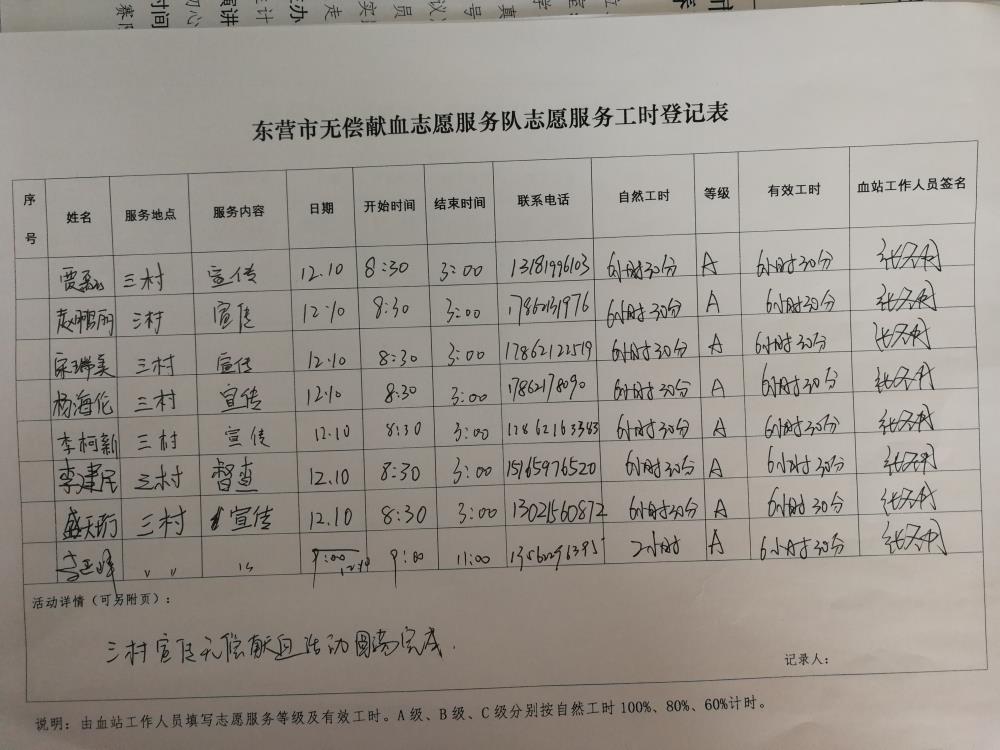 东营市无偿献血志愿服务队志愿服务工时登记表
序号 姓名 服务地点 服务内容 日期 开始时间 结束时间 联系电话 自然工时 等级 有效工时 血站工作人员签名
三村 宣传 12.10 8:30 3:00 13181996103 6小时30分 A 6小时30分
赵鹏丽 三村 宣传 12.10 8:30 3:00 17862131976 6小时30分 A 6小时30分
宋瑞美 三村 宣传 12.10 8:30 3:00 17862122519 6小时30分 A 6小时30分
杨海伦 三村 宣传 12.10 8:30 3:00 17862178090 6小时30分 A 6小时30分
李柯新 三村 宣传 12.10 8:30 3:00 6小时30分 A 6小时30分
李建民 三村 督查 12.10 8:30 3:00 15165976520 6小时30分 A 6小时30分
盛天珩 三村 宣传 12.10 8:30 3:00 13021560872 6小时30分 A 6小时30分
〃 〃 〃 9:00 11:00 2小时 A 6小时30分
活动详情（可另附页）：
三村宣传无偿献血活动圆满完成.
记录人：
说明：由血站工作人员填写志愿服务等级及有效工时。A级、B级、C级分别按自然工时100%、80%、60%计时。